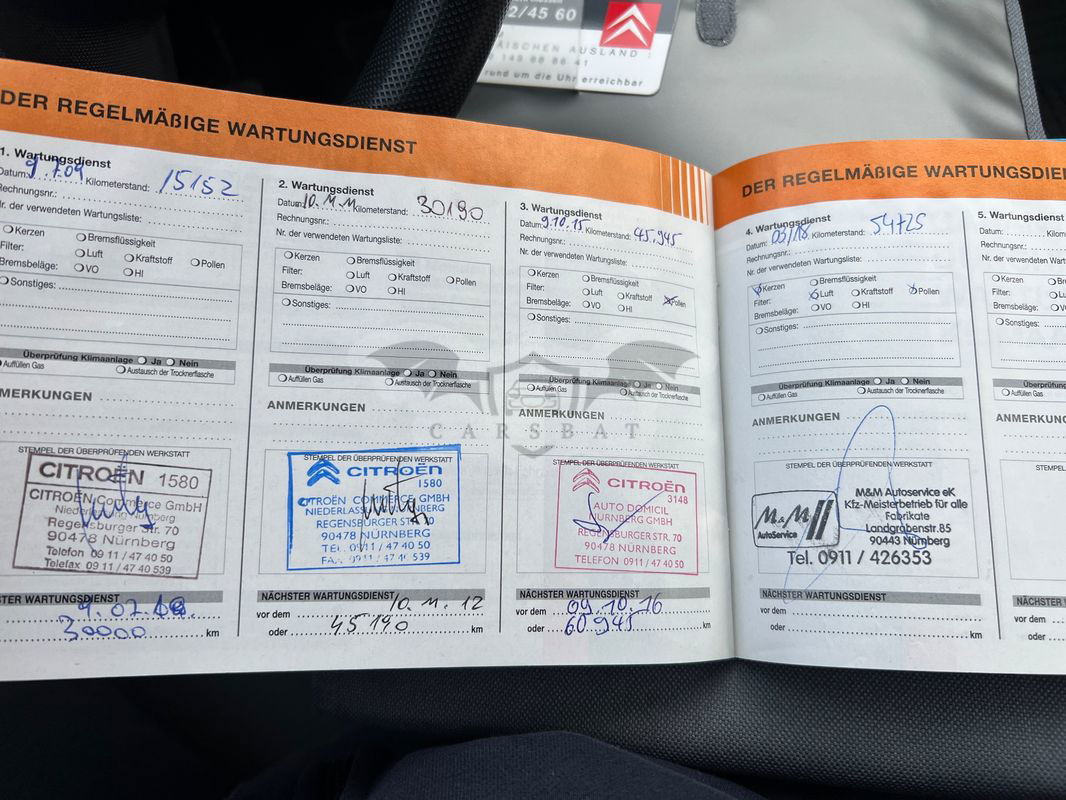 2/45 60
AISCHEN AUSLAND :
149 88 86 41
rund um die Uhr erreichbar
DER REGELMÄßIGE WARTUNGSDIENST
1. Wartungsdienst
Datum: 9.7.09 Kilometerstand: 15152
Rechnungsnr.:
Nr. der verwendeten Wartungsliste:
Kerzen Bremsflüssigkeit
Filter: Luft Kraftstoff Pollen
Bremsbeläge: VO HI
Sonstiges:
Überprüfung Klimaanlage Ja Nein
Auffüllen Gas Austausch der Trocknerflasche
ANMERKUNGEN
STEMPEL DER ÜBERPRÜFENDEN WERKSTATT
CITROËN 1580
CITROËN Commerce GmbH
Niederlassung Nürnberg
Regensburger Str. 70
90478 NÜRNBERG
Telefon 09 11 / 47 40 50
Telefax 09 11 / 47 40 539
STER WARTUNGSDIENST
30000 km
2. Wartungsdienst
Datum: 10.11.11 Kilometerstand: 30190
Rechnungsnr.:
Nr. der verwendeten Wartungsliste:
Kerzen Bremsflüssigkeit
Filter: Luft Kraftstoff Pollen
Bremsbeläge: VO HI
Sonstiges:
Überprüfung Klimaanlage Ja Nein
Auffüllen Gas Austausch der Trocknerflasche
ANMERKUNGEN
STEMPEL DER ÜBERPRÜFENDEN WERKSTATT
CITROËN
1580
CITROËN COMMERCE GMBH
NIEDERLASSUNG NÜRNBERG
REGENSBURGER STR. 70
90478 NÜRNBERG
TEL. 0911 / 47 40 50
FAX. 0911 / 47 40 539
NÄCHSTER WARTUNGSDIENST
vor dem 10.11.12
oder 45190 km
3. Wartungsdienst
Datum: 9.10.15 Kilometerstand: 45.945
Rechnungsnr.:
Nr. der verwendeten Wartungsliste:
Kerzen Bremsflüssigkeit
Filter: Luft Kraftstoff Pollen
Bremsbeläge: VO HI
Sonstiges:
Überprüfung Klimaanlage Ja Nein
Auffüllen Gas Austausch der Trocknerflasche
ANMERKUNGEN
STEMPEL DER ÜBERPRÜFENDEN WERKSTATT
CITROËN
3148
AUTO DOMICIL
NÜRNBERG GMBH
REGENSBURGER STR. 70
90478 NÜRNBERG
TELEFON 0911 / 47 40 50
NÄCHSTER WARTUNGSDIENST
vor dem 09.10.16
oder 60945 km
DER REGELMÄßIGE WARTUNGSDIEN
4. Wartungsdienst
Datum: 03/18 Kilometerstand: 54725
Rechnungsnr.:
Nr. der verwendeten Wartungsliste:
Kerzen Bremsflüssigkeit
Filter: Luft Kraftstoff Pollen
Bremsbeläge: VO HI
Sonstiges:
Überprüfung Klimaanlage Ja Nein
Auffüllen Gas Austausch der Trocknerflasche
ANMERKUNGEN
STEMPEL DER ÜBERPRÜFENDEN WERKSTATT
M&M
AutoService
M&M Autoservice eK
Kfz-Meisterbetrieb für alle
Fabrikate
Landgrabenstr.85
90443 Nürnberg
Tel. 0911 / 426353
NÄCHSTER WARTUNGSDIENST
vor dem
oder km
5. Wartungsdienst
Datum: Kilom
Rechnungsnr.:
Nr. der verwendeten Wart
Kerzen Br
Filter: Lu
Bremsbeläge: VO
Sonstiges:
Überprüfung
Auffüllen Gas
ANMERKUNGEN
STEMPEL D
NÄCHSTER WARTUNG
vor dem
oder
CARSBAT